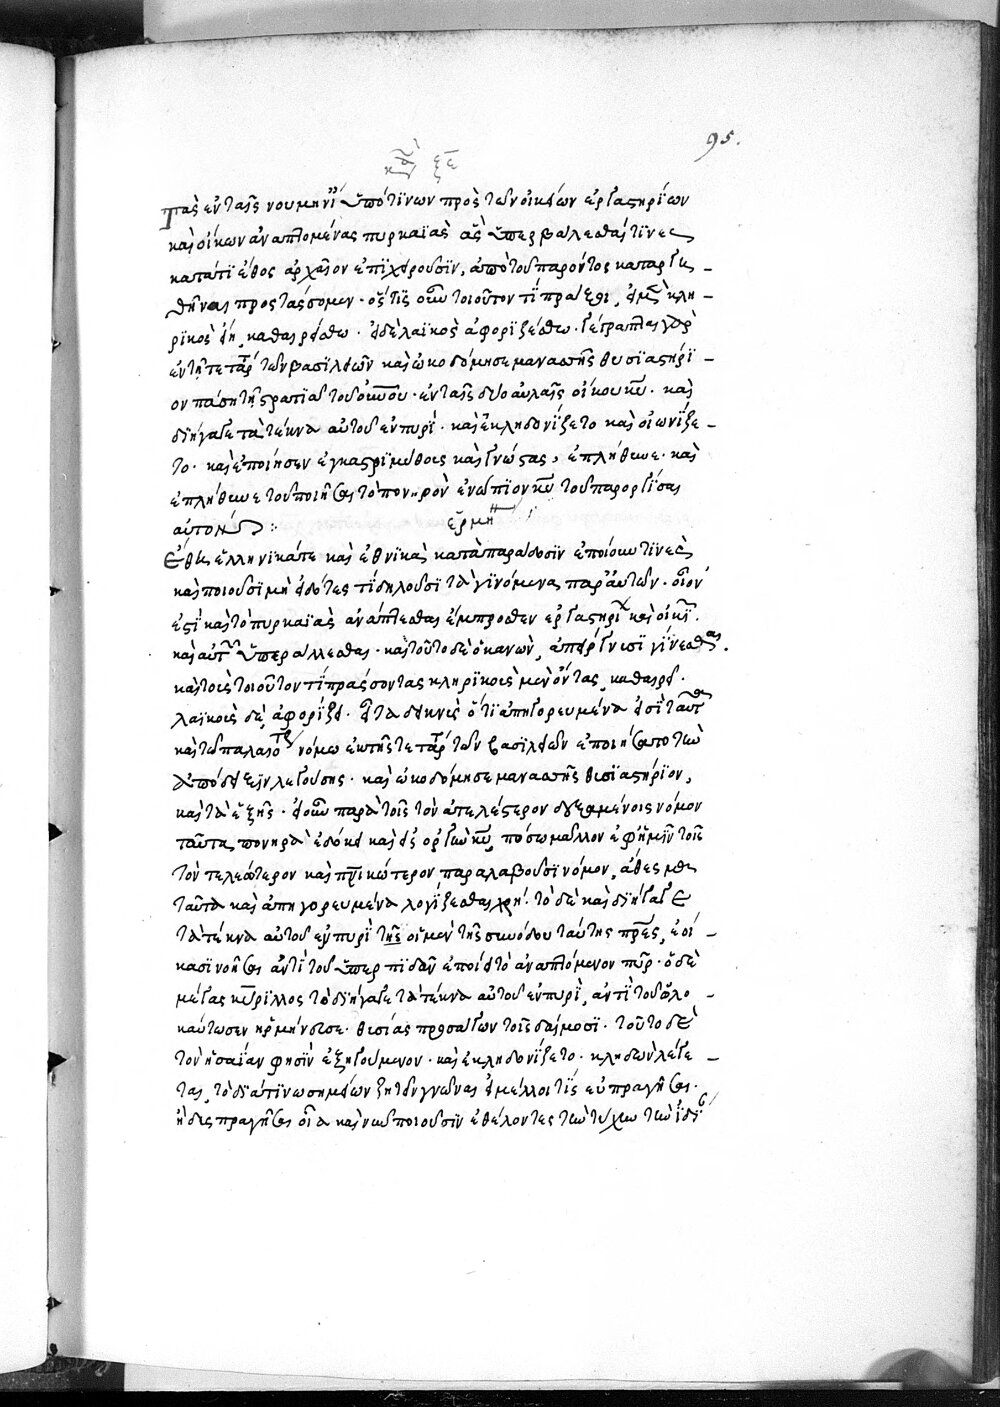 95.
κα ξε
Τὰς ἐν ταῖς νουμηνί ὑπό τινων πρὸς τῶν οἰκείων ἐργαστηρίων
καὶ οἴκων ἀναπτομένας πυρκαϊὰς ἃς ὑπερβάλεσθαί τινες
κατά τι ἔθος ἀρχαῖον ἐπιχειροῦσιν, ἀπὸ τοῦ παρόντος καταργη-
θῆναι προστάσσομεν· ὅστις οὖν τοιοῦτον τὶ πράξει, εἰ μὲν κλη-
ρικὸς εἴη, καθαιρείσθω· εἰ δὲ λαϊκὸς ἀφοριζέσθω· γέγραπται γὰρ
ἐν τῇ τετάρ τῶν βασιλειῶν καὶ ὠκοδόμησε μανασσῆς θυσιαστήρι-
ον πάσῃ τῇ στρατιᾶ τοῦ οὐνοῦ· ἐν ταῖς δυσὶ αὐλαῖς οἴκου κυ· καὶ
διήγαγε τὰ τέκνα αὐτοῦ ἐν πυρί· καὶ ἐκληδονίζετο καὶ οἰωνίζε-
το· καὶ ἐποίησεν ἐγγαστριμύθοις καὶ γνώστας, ἐπλήθυνε· καὶ
ἐπλήθυνε τοῦ ποιῆσαι τὸ πονηρὸν ἐνώπιον κυ τοῦ παροργίσαι
αὐτόν :
ἑρμη
Ἔθη ἑλληνικά τε καὶ ἐθνικὰ κατὰ παράδοσιν ἐποίουν τινὲς
καὶ ποιοῦσι μὴ εἰδότες τί δηλοῦσι τὰ γινόμενα παρ' αὐτῶν· οἷον
ἐστὶ καὶ τὸ πυρκαϊὰς ἀνάπτεσθαι ἔμπροσθεν ἐργαστηρί καὶ οἰκι·
καὶ αὐτ ὑπεράλλεσθαι· καὶ τοῦτο δὲ ὁ κανών, ἀπείργει μὴ γίνεσθαι.
καὶ τοὶς τοιοῦτον τὶ πράσσοντας κληρικοὶς μὲν ὄντας, καθαιρεῖ·
λαϊκοὶς δὲ, ἀφορίζει· εἶτα δεικνὶς ὅτι ἀπηγορευμένα εἰσὶ ταῦτα
καὶ τῶ παλαιοτέ νόμω ἐκ τῆς τετάρ τῶν βασιλειῶν ἐποιήσατο τὴν
ἀπόδειξιν λεγούσης· καὶ ὠκοδόμησε μανασσῆς θισιαστήριον,
καὶ τὰ ἑξῆς· εἰ οὖν παρὰ τοῖς τὸν ἀτελέστερον δεξαμένοις νόμον
ταῦτα πονηρὰ ἐδόκει καὶ εἰς ὀργὴν κυ, πόσω μαλλον ἐφ' ἡμῖν τοῖς
τὸν τελεώτερον καὶ πνικώτερον παραλαβοῦσι νόμον, ἄθεσμα
ταῦτα καὶ ἀπηγορευμένα λογίζεσθαι χρή· τὸ δὲ καὶ διήγαγε
τὰ τέκνα αὐτοῦ ἐν πυρὶ τῆς οἱ μὲν τῆς συνόδου ταύτης πρες, ἐοί-
κασι νοῆσαι ἀντὶ τοῦ ὑπερπηδᾶν ἐποίει τὸ ἀναπτόμενον πῦρ· ὁ δὲ
μέγας κύριλλος τὸ διήγαγε τὰ τέκνα αὐτοῦ ἐν πυρὶ, ἀντὶ τοῦ ὁλο-
καύτωσεν ἡρμήνευσε· θισίας προσαγων τοῖς δαίμοσι· τοῦτο δὲ
τὸν ἡσαΐαν φησὶν ἐξηγούμενον· καὶ ἐκληδονίζετο· κληδὼν λέγε-
ται, τὸ διά τινων σημείων ζητεῖν γνῶναι εἰ μέλλοι τις εὐπραγῆσαι·
ἢ δυσπραγῆσαι οἷα καὶ νῦν ποιοῦσιν ἐθέλοντες τὴν τύχην τὴν ἰδί